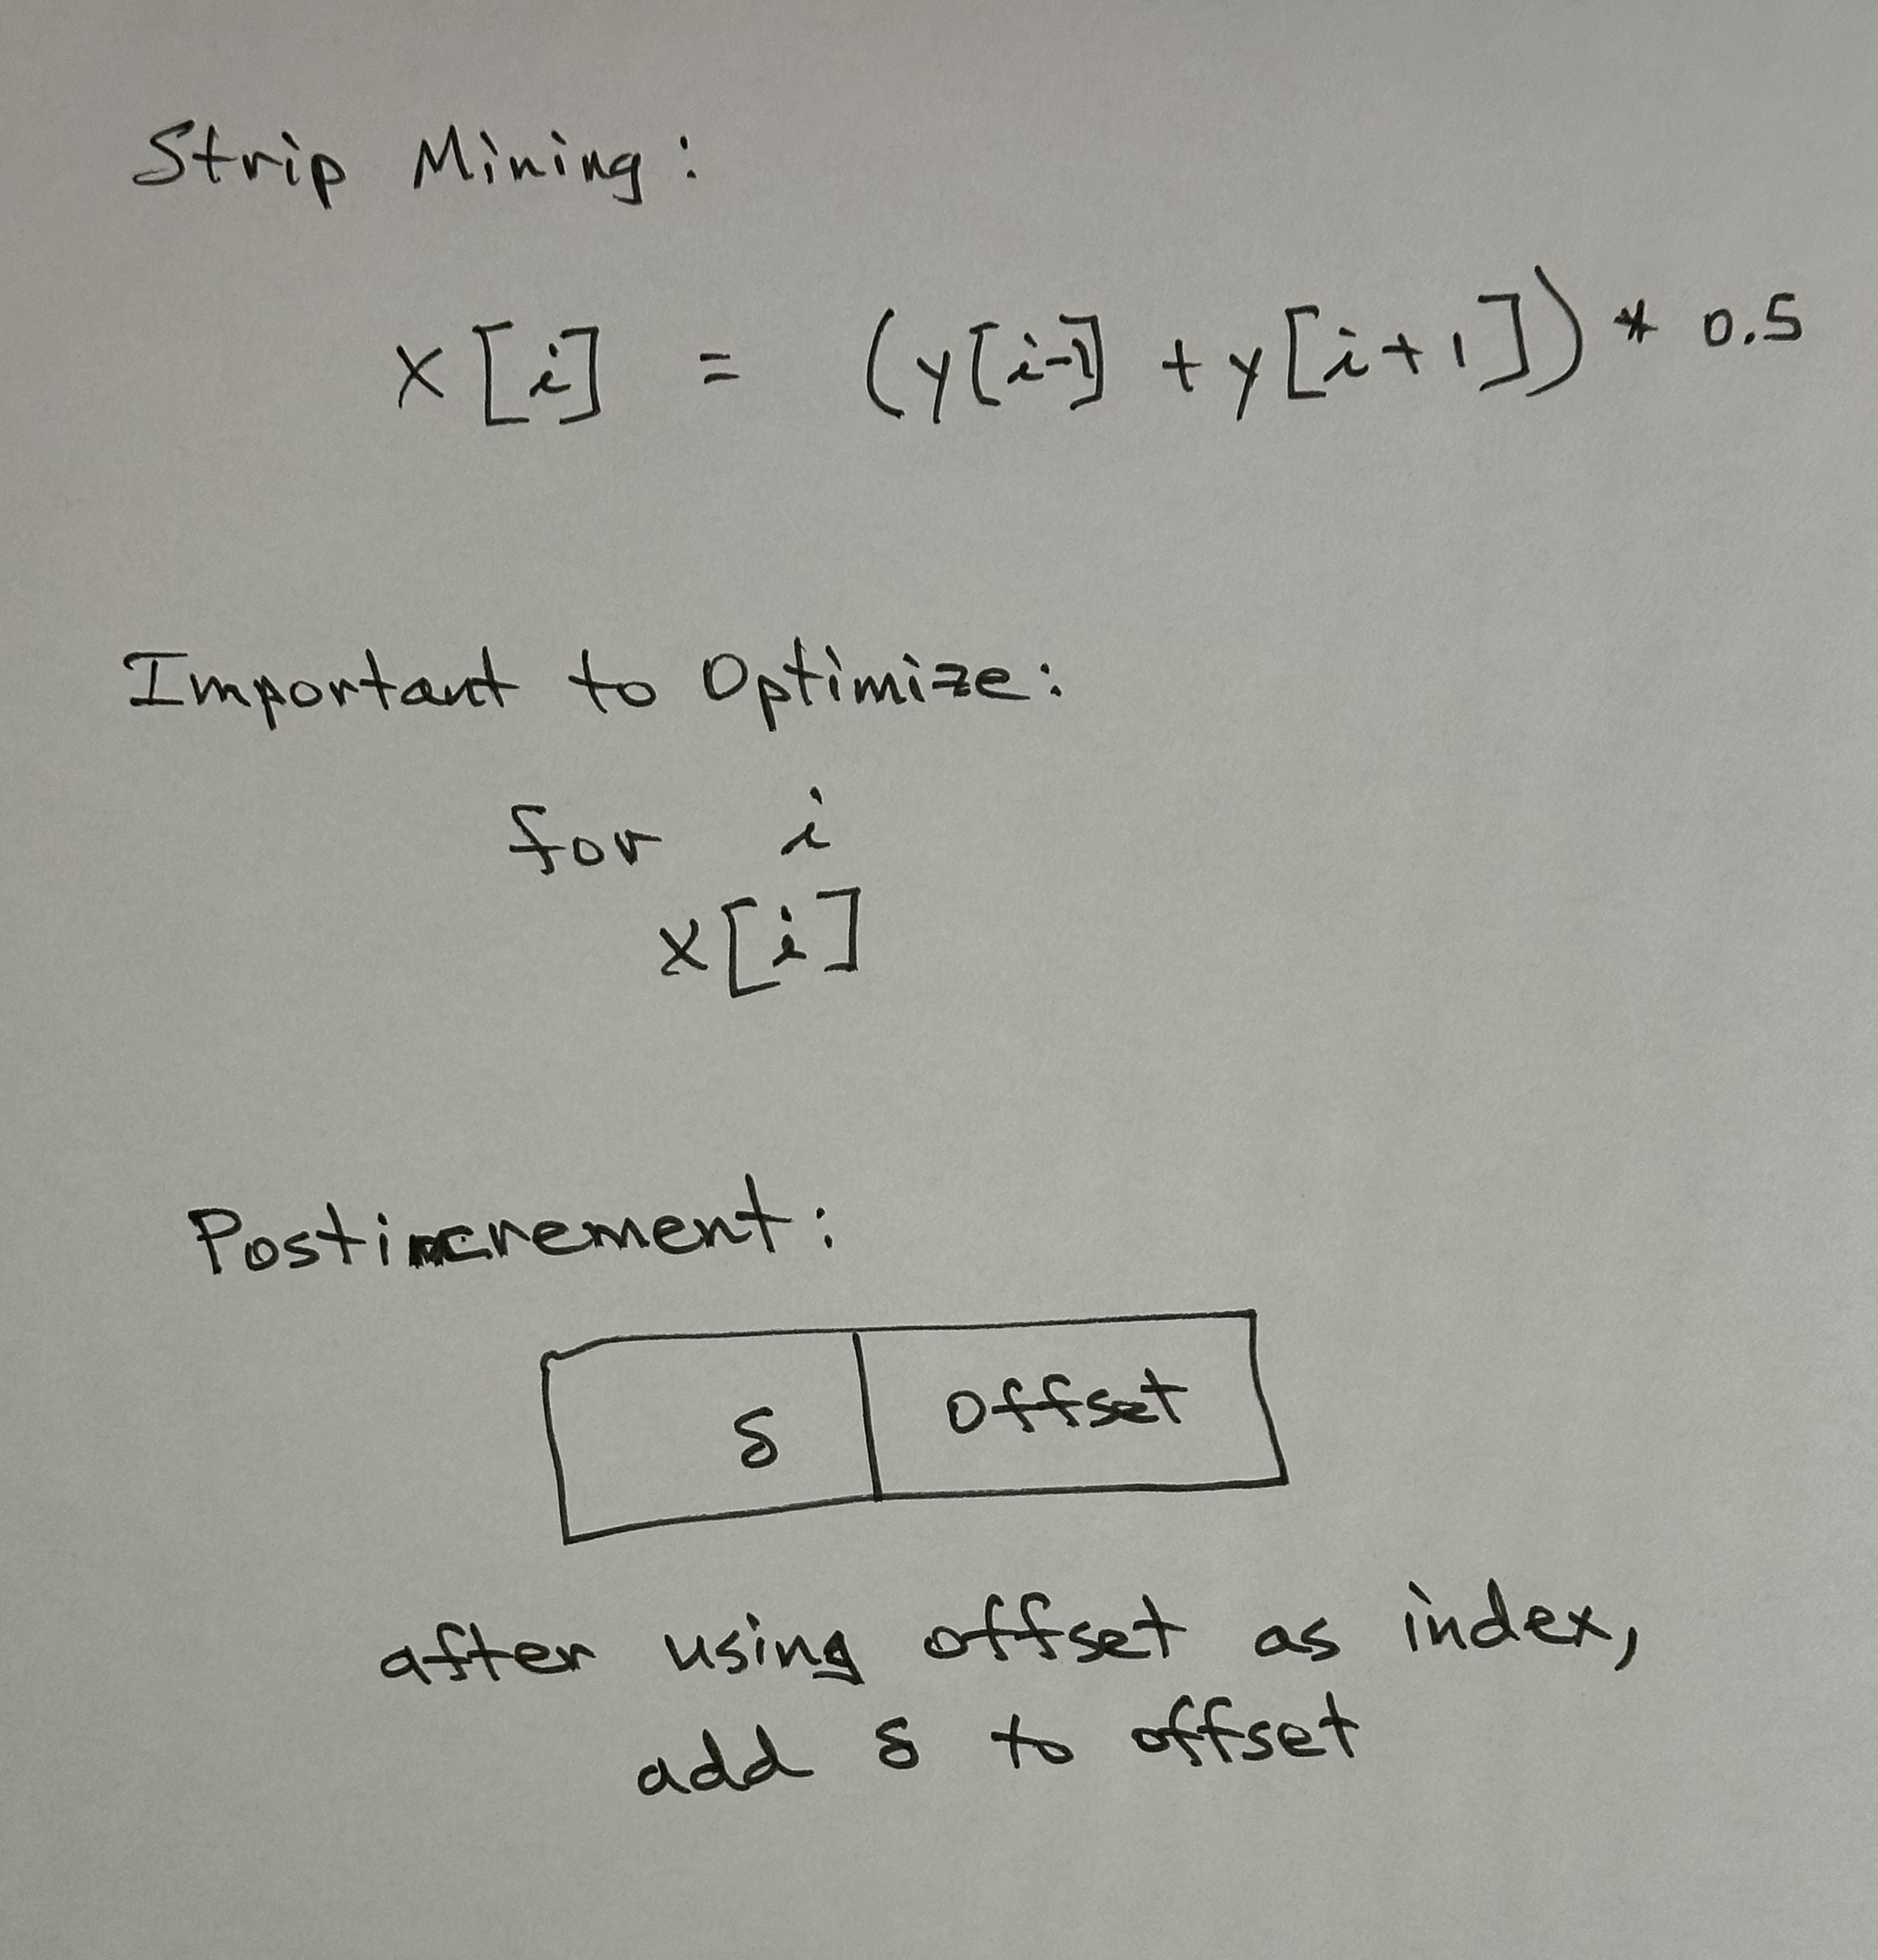 Strip Mining:
x[i] = (y[i-1] + y[i+1]) * 0.5
Important to Optimize:
for i
x[i]
Postincrement:
δ offset
after using offset as index,
add δ to offset